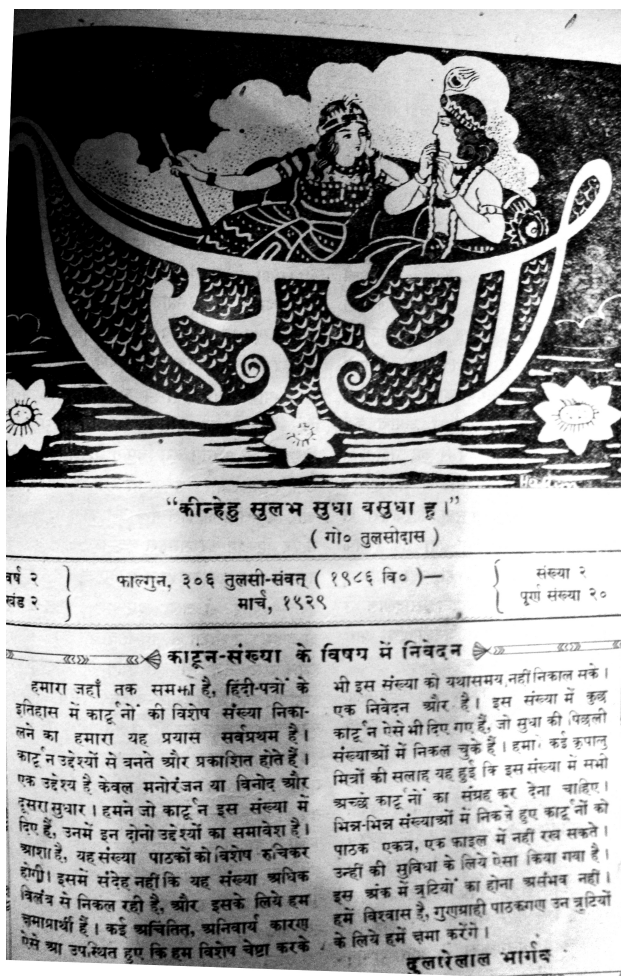 सुधा
“कीन्हेहु सुलभ सुधा वसुधा हू।”
( गो० तुलसोदास )
वर्ष २
खंड २
फाल्गुन, ३०६ तुलसी-संवत् ( १९८६ वि० )—
मार्च, १९२९
संख्या २
पूर्ण संख्या २०
कार्टून-संख्या के विषय में निवेदन
हमारा जहाँ तक समझा है, हिंदी-पत्रों के
इतिहास में कार्टूनों की विशेष संख्या निका-
लने का हमारा यह प्रयास सर्वप्रथम है।
कार्टून उद्देश्यों से बनते और प्रकाशित होते हैं।
एक उद्देश्य है केवल मनोरंजन या विनोद और
दूसरा सुधार। हमने जो कार्टून इस संख्या में
दिए हैं, उनमें इन दोनो उद्देश्यों का समावेश है।
आशा है, यह संख्या पाठकों को विशेष रुचिकर
होगी। इसमें संदेह नहीं कि यह संख्या अधिक
विलंब से निकल रही है, और इसके लिये हम
क्षमाप्रार्थी हैं। कई अचिंतित, अनिवार्य कारण
ऐसे आ उपस्थित हुए कि हम विशेष चेष्टा करके
भी इस संख्या को यथासमय नहीं निकाल सके।
एक निवेदन और है। इस संख्या में कुछ
कार्टून ऐसे भी दिए गए हैं, जो सुधा की पिछली
संख्याओं में निकल चुके हैं। हमारे कई कृपालु
मित्रों की सलाह यह हुई कि इस संख्या में सभी
अच्छे कार्टूनों का संग्रह कर देना चाहिए।
भिन्न-भिन्न संख्याओं में निकले हुए कार्टूनों को
पाठक एकत्र, एक फाइल में नहीं रख सकते।
उन्हीं की सुविधा के लिये ऐसा किया गया है।
इस अंक में त्रुटियों का होना असंभव नहीं।
हमें विश्वास है, गुणग्राही पाठकगण उन त्रुटियों
के लिये हमें क्षमा करेंगे।
दुलारेलाल भार्गव